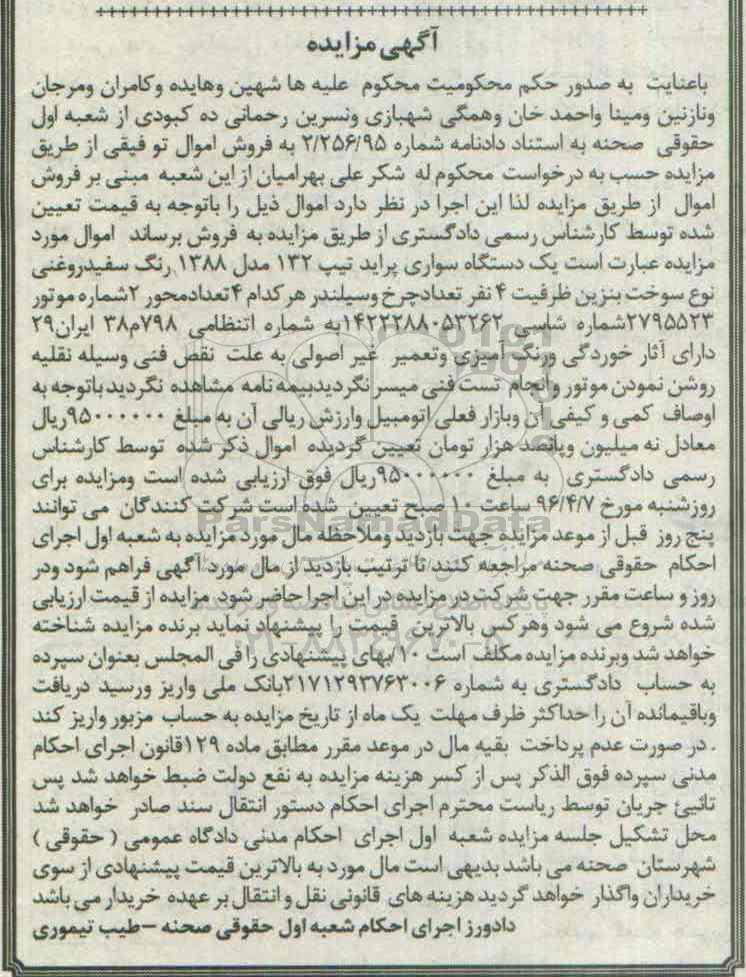 آگهی مزایده
باعنایت به صدور حکم محکومیت محکوم علیه ها شهین وهایده وکامران ومرجان
ونازنین ومینا واحمد خان وهمگی شهبازی ونسرین رحمانی ده کبودی از شعبه اول
حقوقی صحنه به استناد دادنامه شماره ۲/۲۵۶/۹۵ به فروش اموال تو فیقی از طریق
مزایده حسب به درخواست محکوم له شکر علی بهرامیان از این شعبه مبنی بر فروش
اموال از طریق مزایده لذا این اجرا در نظر دارد اموال ذیل را باتوجه به قیمت تعیین
شده توسط کارشناس رسمی دادگستری از طریق مزایده به فروش برساند اموال مورد
مزایده عبارت است یک دستگاه سواری پراید تیپ ۱۳۲ مدل ۱۳۸۸ رنگ سفیدروغنی
نوع سوخت بنزین ظرفیت ۴ نفر تعدادچرخ وسیلندر هر کدام ۴تعدادمحور ۲شماره موتور
۲۷۹۵۵۲۳شماره شاسی ۱۴۲۲۲۸۸۰۵۳۲۶۲به شماره انتظامی ۷۹۸م۳۸ ایران۲۹
دارای آثار خوردگی ورنگ آمیزی وتعمیر غیر اصولی به علت نقص فنی وسیله نقلیه
روشن نمودن موتور وانجام تست فنی میسر نگردیدبیمه نامه مشاهده نگردید باتوجه به
اوصاف کمی و کیفی آن وبازار فعلی اتومبیل وارزش ریالی آن به مبلغ ۹۵۰۰۰۰۰۰ریال
معادل نه میلیون وپانصد هزار تومان تعیین گردیده اموال ذکر شده توسط کارشناس
رسمی دادگستری به مبلغ ۹۵۰۰۰۰۰۰ریال فوق ارزیابی شده است ومزایده برای
روزشنبه مورخ ۹۶/۴/۷ ساعت ۱۰ صبح تعیین شده است شرکت کنندگان می توانند
پنج روز قبل از موعد مزایده جهت بازدید وملاحظه مال مورد مزایده به شعبه اول اجرای
احکام حقوقی صحنه مراجعه کنند تا ترتیب بازدید از مال مورد آگهی فراهم شود ودر
روز و ساعت مقرر جهت شرکت در مزایده در این اجرا حاضر شود مزایده از قیمت ارزیابی
شده شروع می شود وهرکس بالاترین قیمت را پیشنهاد نماید برنده مزایده شناخته
خواهد شد وبرنده مزایده مکلف است ۱۰/بهای پیشنهادی را فی المجلس بعنوان سپرده
به حساب دادگستری به شماره ۲۱۷۱۲۹۳۷۶۳۰۰۶بانک ملی واریز ورسید دریافت
وباقیمانده آن را حداکثر ظرف مهلت یک ماه از تاریخ مزایده به حساب مزبور واریز کند
. در صورت عدم پرداخت بقیه مال در موعد مقرر مطابق ماده ۱۲۹قانون اجرای احکام
مدنی سپرده فوق الذکر پس از کسر هزینه مزایده به نفع دولت ضبط خواهد شد پس
تائیئ جریان توسط ریاست محترم اجرای احکام دستور انتقال سند صادر خواهد شد
محل تشکیل جلسه مزایده شعبه اول اجرای احکام مدنی دادگاه عمومی ( حقوقی )
شهرستان صحنه می باشد بدیهی است مال مورد به بالاترین قیمت پیشنهادی از سوی
خریداران واگذار خواهد گردید هزینه های قانونی نقل و انتقال بر عهده خریدار می باشد
دادورز اجرای احکام شعبه اول حقوقی صحنه –طیب تیموری
ParsNamadData